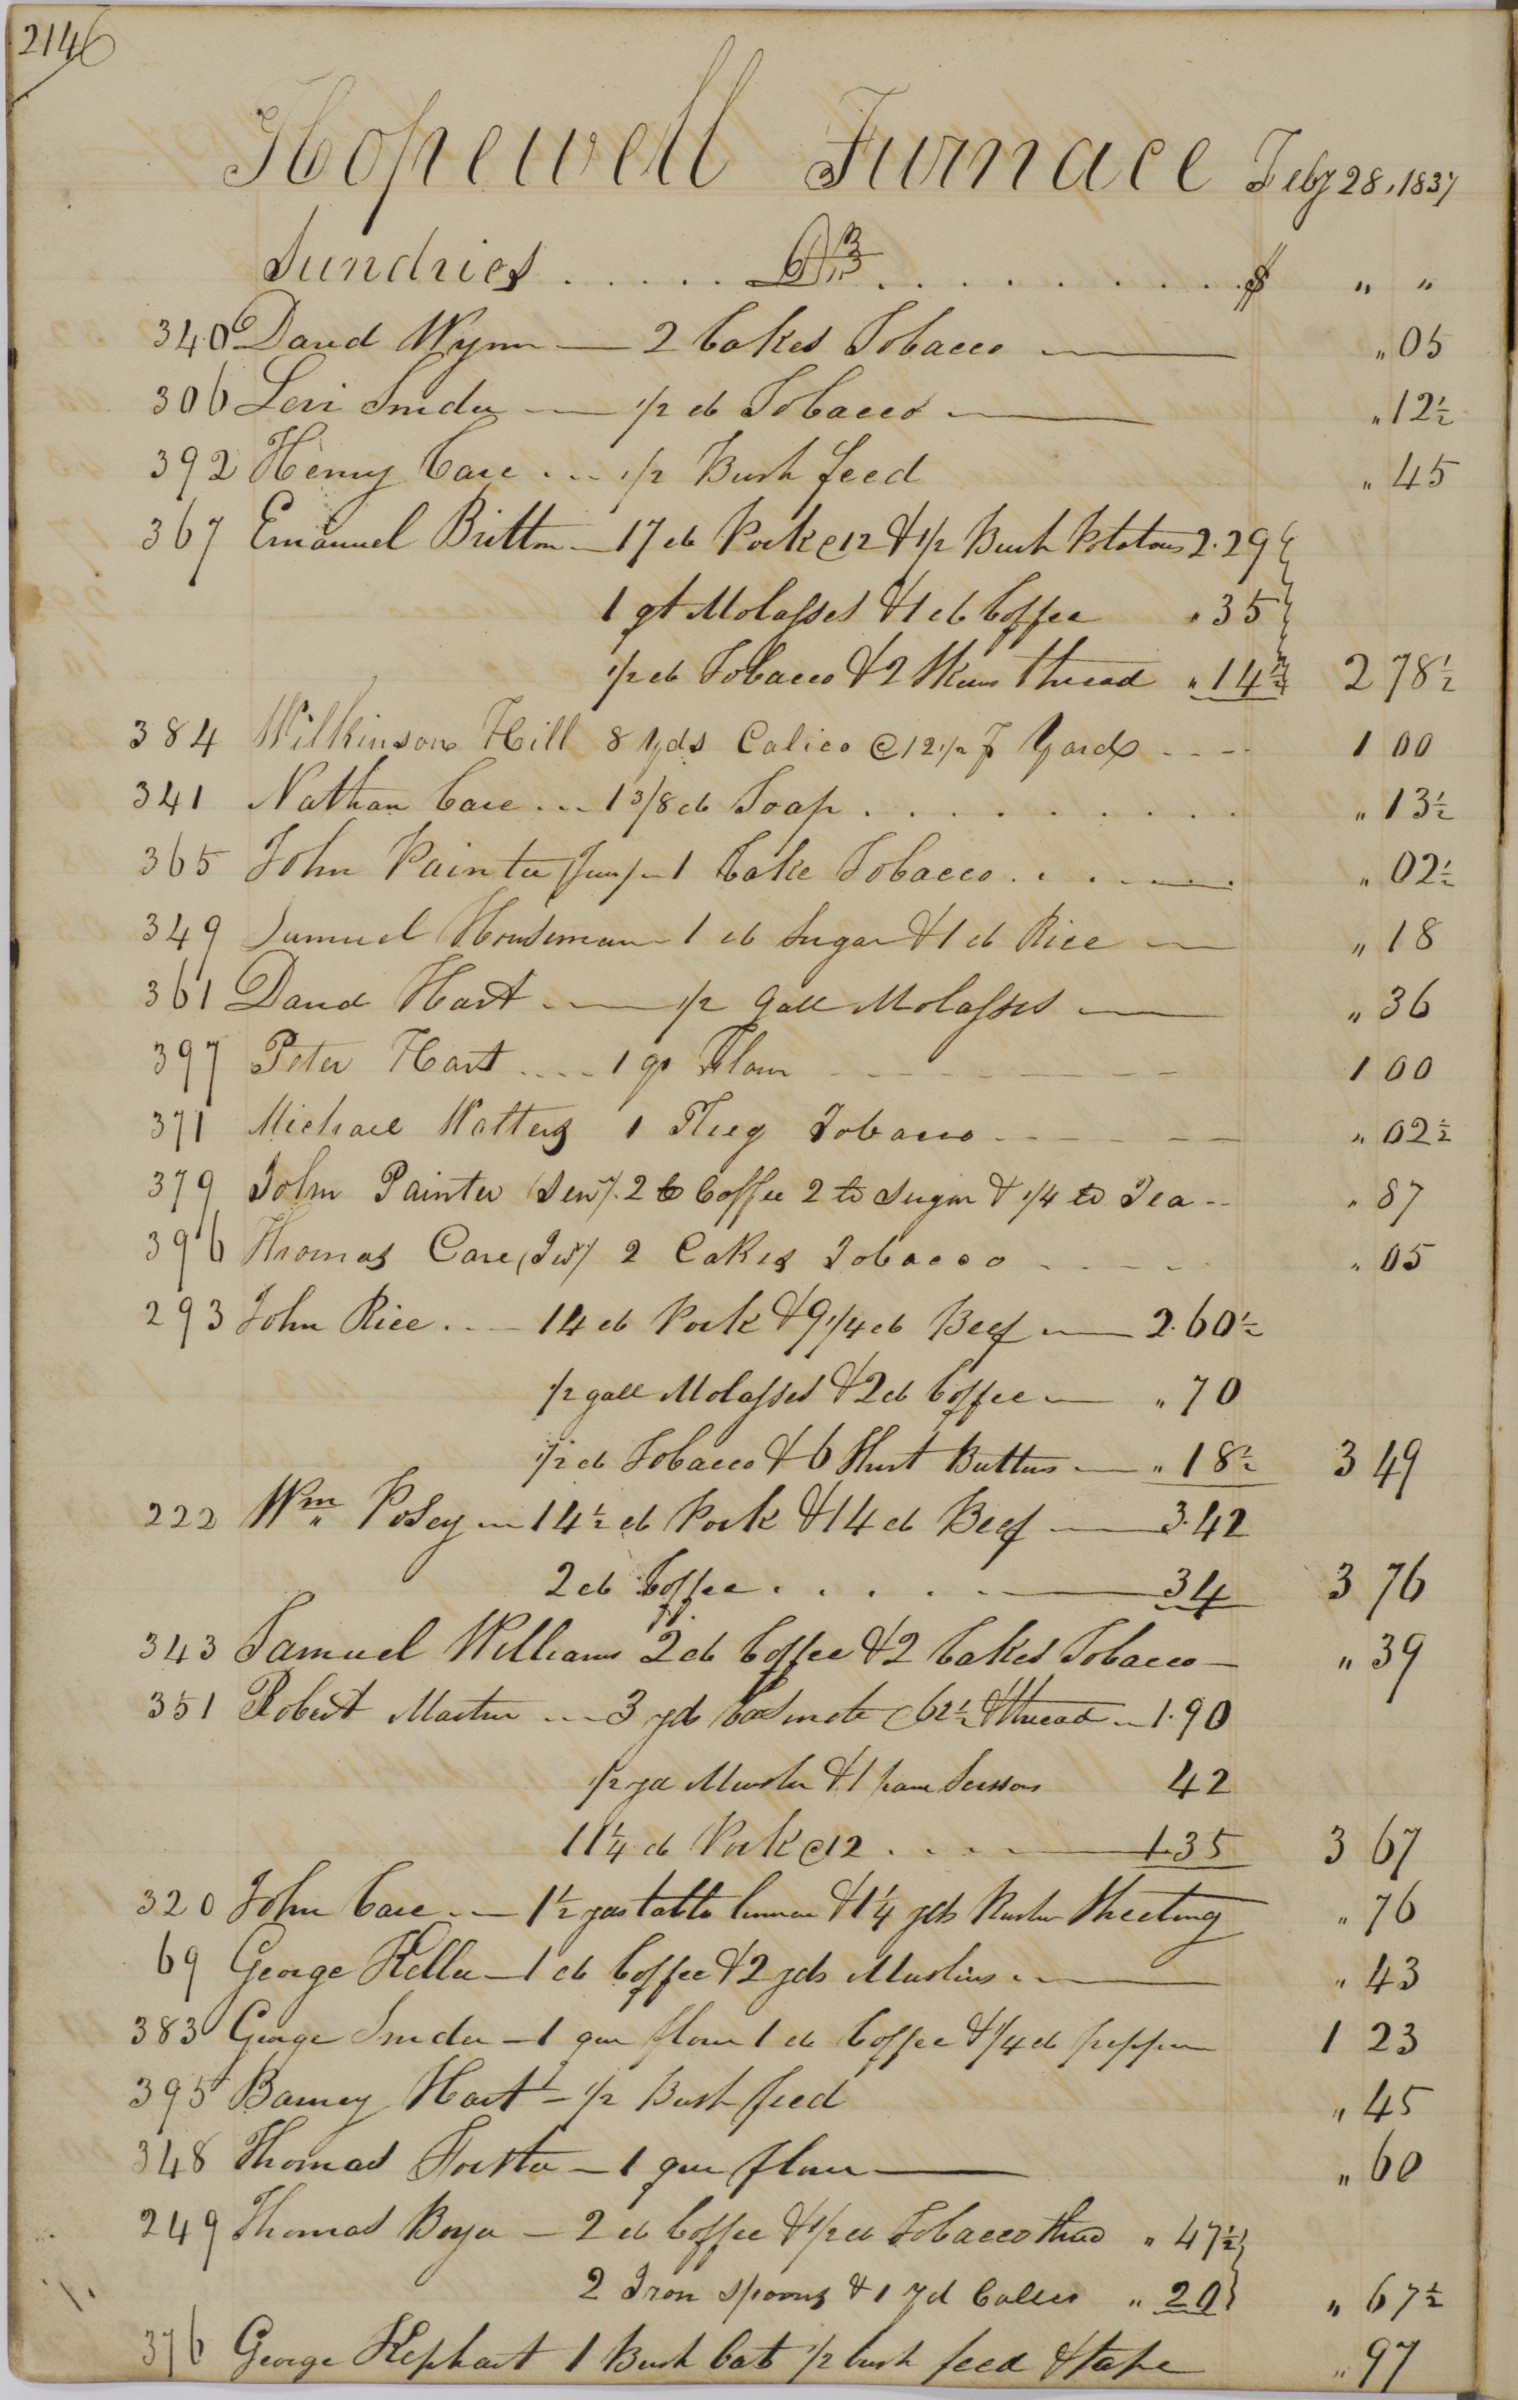 2146
Hopewell Furnace Feby 28, 1837
Sundries . . . . . Drs . . . . . . . . . $ " "
340 David Wynn — 2 Cakes Tobacco — " 05
306 Levi Snider — 1/2 lb Tobacco — " 12 1/2
392 Henry Care ... 1/2 Bush feed " 45
367 Emanuel Britton — 17 lb Pork @ 12 & 1/2 Bush Potatoes 2.29
1 qt Molasses & 1 lb Coffee " 35
1/2 lb Tobacco & 2 Skeins thread " 14 1/2 2 78 1/2
384 Wilkinson Hill 8 Yds Calico @ 12 1/2 Yard 1 00
341 Nathan Care ... 1 3/8 lb Soap . . . . . . . " 13 1/2
365 John Painter (Jun) — 1 Cake Tobacco . . . . " 02 1/2
349 Samuel Houseman — 1 lb Sugar & 1 lb Rice — " 18
361 David Hart — 1/2 Gall Molasses — " 36
397 Peter Hart .... 1 qr Flour 1 00
371 Michael Watters 1 Plug Tobacco " 02 1/2
379 John Painter (Senr). 2 lb Coffee 2 lb Sugar & 1/4 lb Tea -- " 87
396 Thomas Care, (Jur) 2 Cakes Tobacco " 05
293 John Rice . — 14 lb Pork & 9 1/4 lb Beef — 2.60 1/2
1/2 gall Molasses & 2 lb Coffee — " 70
1/2 lb Tobacco & 6 Shirt Buttons — " 18 1/2 3 49
222 Wm Posey — 14 1/2 lb Pork & 14 lb Beef — 3.42
2 lb Coffee . . . . — 34 3 76
343 Samuel Williams 2 lb Coffee & 2 Cakes Tobacco — " 39
351 Robert Martin ... 3 yds @ 62 1/2 & thread — 1.90
1/2 yd Muslin & 1 pair Scissors 42
11 1/4 lb Pork @ 12 . . . — 1.35 3 67
320 John Care . — 1 1/2 yds table linnen & 1 1/4 yds Sheeting " 76
69 George Keller — 1 lb Coffee & 2 yds Muslin . — " 43
383 George Snider — 1 qur flour 1 lb Coffee & 1/4 lb pepper 1 23
395 Barney Hart — 1/2 Bush feed " 45
348 Thomas Foster — 1 qur flour — " 60
249 Thomas Boyer — 2 lb Coffee & 1/2 lb Tobacco thread " 47 1/2
2 Iron Spoons & 1 yd Calico " 20 " 67 1/2
376 George Kephart 1 Bush Oats 1/2 bush feed & tape " 97